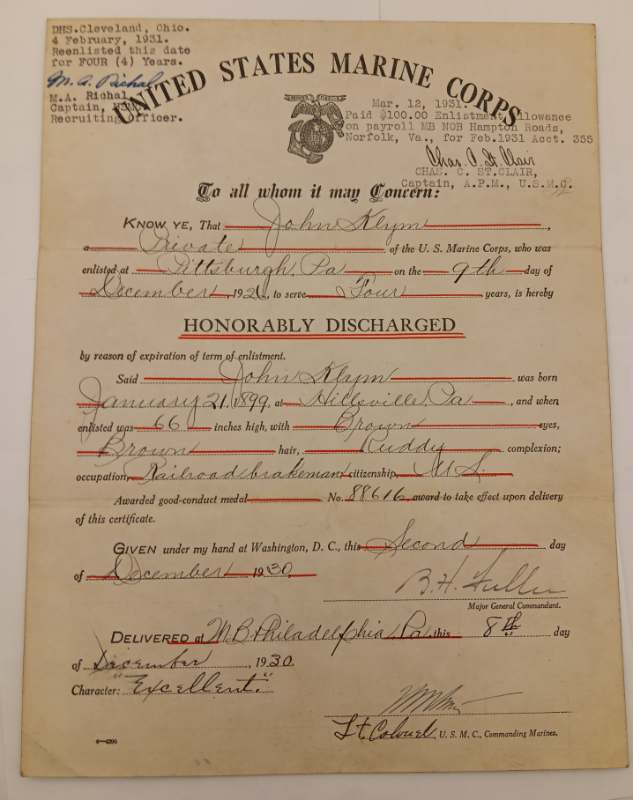 DHS.Cleveland, Ohio.
4 February, 1931.
Reenlisted this date
for FOUR (4) Years.
M. A. Richal
M.A. Richal,
Captain,
Recruiting Officer.
UNITED STATES MARINE CORPS
Mar. 12, 1931.
Paid $100.00 Enlistment Allowance
on payroll MB NOB Hampton Roads,
Norfolk, Va., for Feb.1931 Acct. 355
Chas. C. St. Clair
CHAS. C. ST.CLAIR,
Captain, A.P.M., U.S.M.C.
To all whom it may Concern:
KNOW YE, That John Klym,
a Private of the U. S. Marine Corps, who was
enlisted at Pittsburgh, Pa on the 9th day of
December, 1926, to serve Four years, is hereby
HONORABLY DISCHARGED
by reason of expiration of term of enlistment.
Said John Klym was born
January 21, 1899, at Hillsville, Pa, and when
enlisted was 66 inches high, with Brown eyes,
Brown hair, Ruddy complexion;
occupation, Railroad brakeman citizenship, U.S.
Awarded good-conduct medal No. 88616, award to take effect upon delivery
of this certificate.
GIVEN under my hand at Washington, D. C., this Second day
of December 1930.
B. H. Fuller
Major General Commandant.
DELIVERED at M.B. Philadelphia, Pa. this 8th day
of December 1930
Character: "Excellent."
Lt Colonel, U. S. M. C., Commanding Marines.